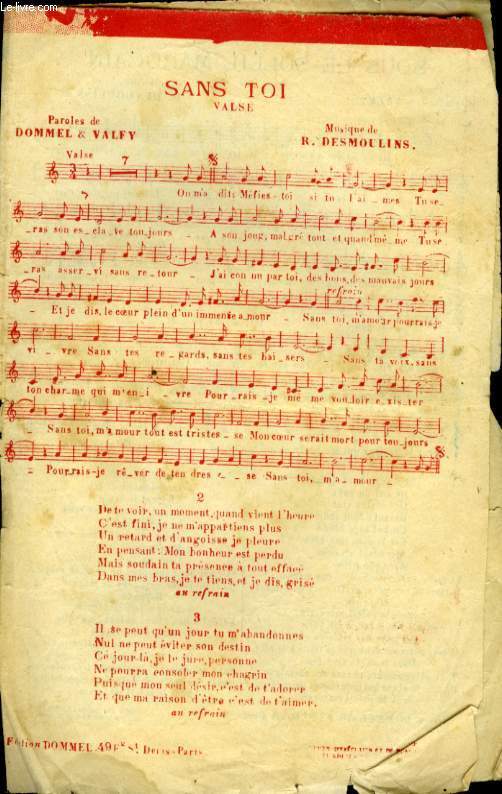 Le-livre.com
SANS TOI
VALSE
Paroles de
DOMMEL & VALFY
Musique de
R. DESMOULINS.
Valse
7
On m'a dit: Méfies-toi si tu l'ai-mes Tu se-
-ras son es-cla-ve tou-jours - A son joug, mal-gré tout et quand mê-me Tu se-
-ras asser-vi sans re-tour - J'ai con-nu par toi, des bons, des mauvais jours
refrain
- Et je dis, le cœur plein d'un immense a-mour - Sans toi, m'amour pourrais-je
vi-vre Sans tes re-gards, sans tes bai-sers - Sans ta voix, sans
ton char-me qui m'en-i-vre Pour-rais-je mê-me vou-loir e-xis-ter
- Sans toi, m'a-mour tout est tristes-se Mon cœur serait mort pour tou-jours
- Pour-rais-je rê-ver de ten-dres-se Sans toi, m'a-mour -
2
De te voir, un moment, quand vient l'heure
C'est fini, je ne m'appartiens plus
Un retard et d'angoisse je pleure
En pensant: Mon bonheur est perdu
Mais soudain ta présence à tout effacé
Dans mes bras, je te tiens, et je dis, grisé
au refrain
3
Il se peut qu'un jour tu m'abandonnes
Nul ne peut éviter son destin
Ce jour-là, je le jure, personne
Ne pourra consoler mon chagrin
Puisque mon seul désir, c'est de t'adorer
Et que ma raison d'être c'est de t'aimer.
au refrain
Edition DOMMEL 49 Fg St Denis-Paris